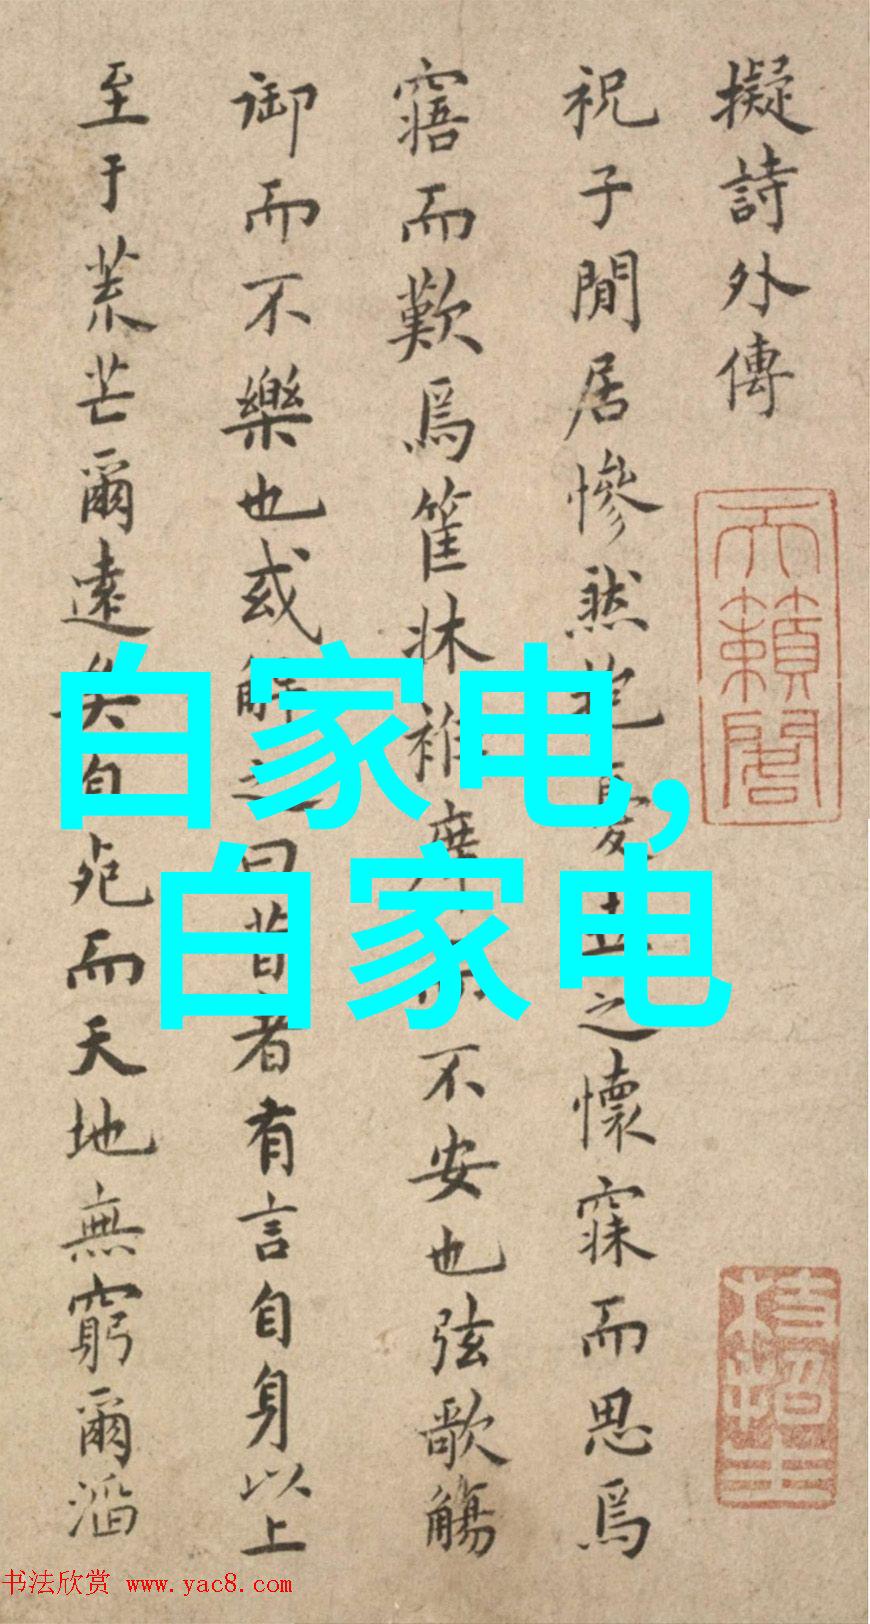 擬詩外傳
天籟閣
枝指生
祝子閒居慘然抱憂之懷寐而思焉
寤而歎焉筐牀而不安也弦歌觴
御而不樂也或解之曰昔者有言自身以上
至于荒芒爾遠矣自死而天地無窮爾滔
白家电,
白家电
书法欣赏 www.yac8.com